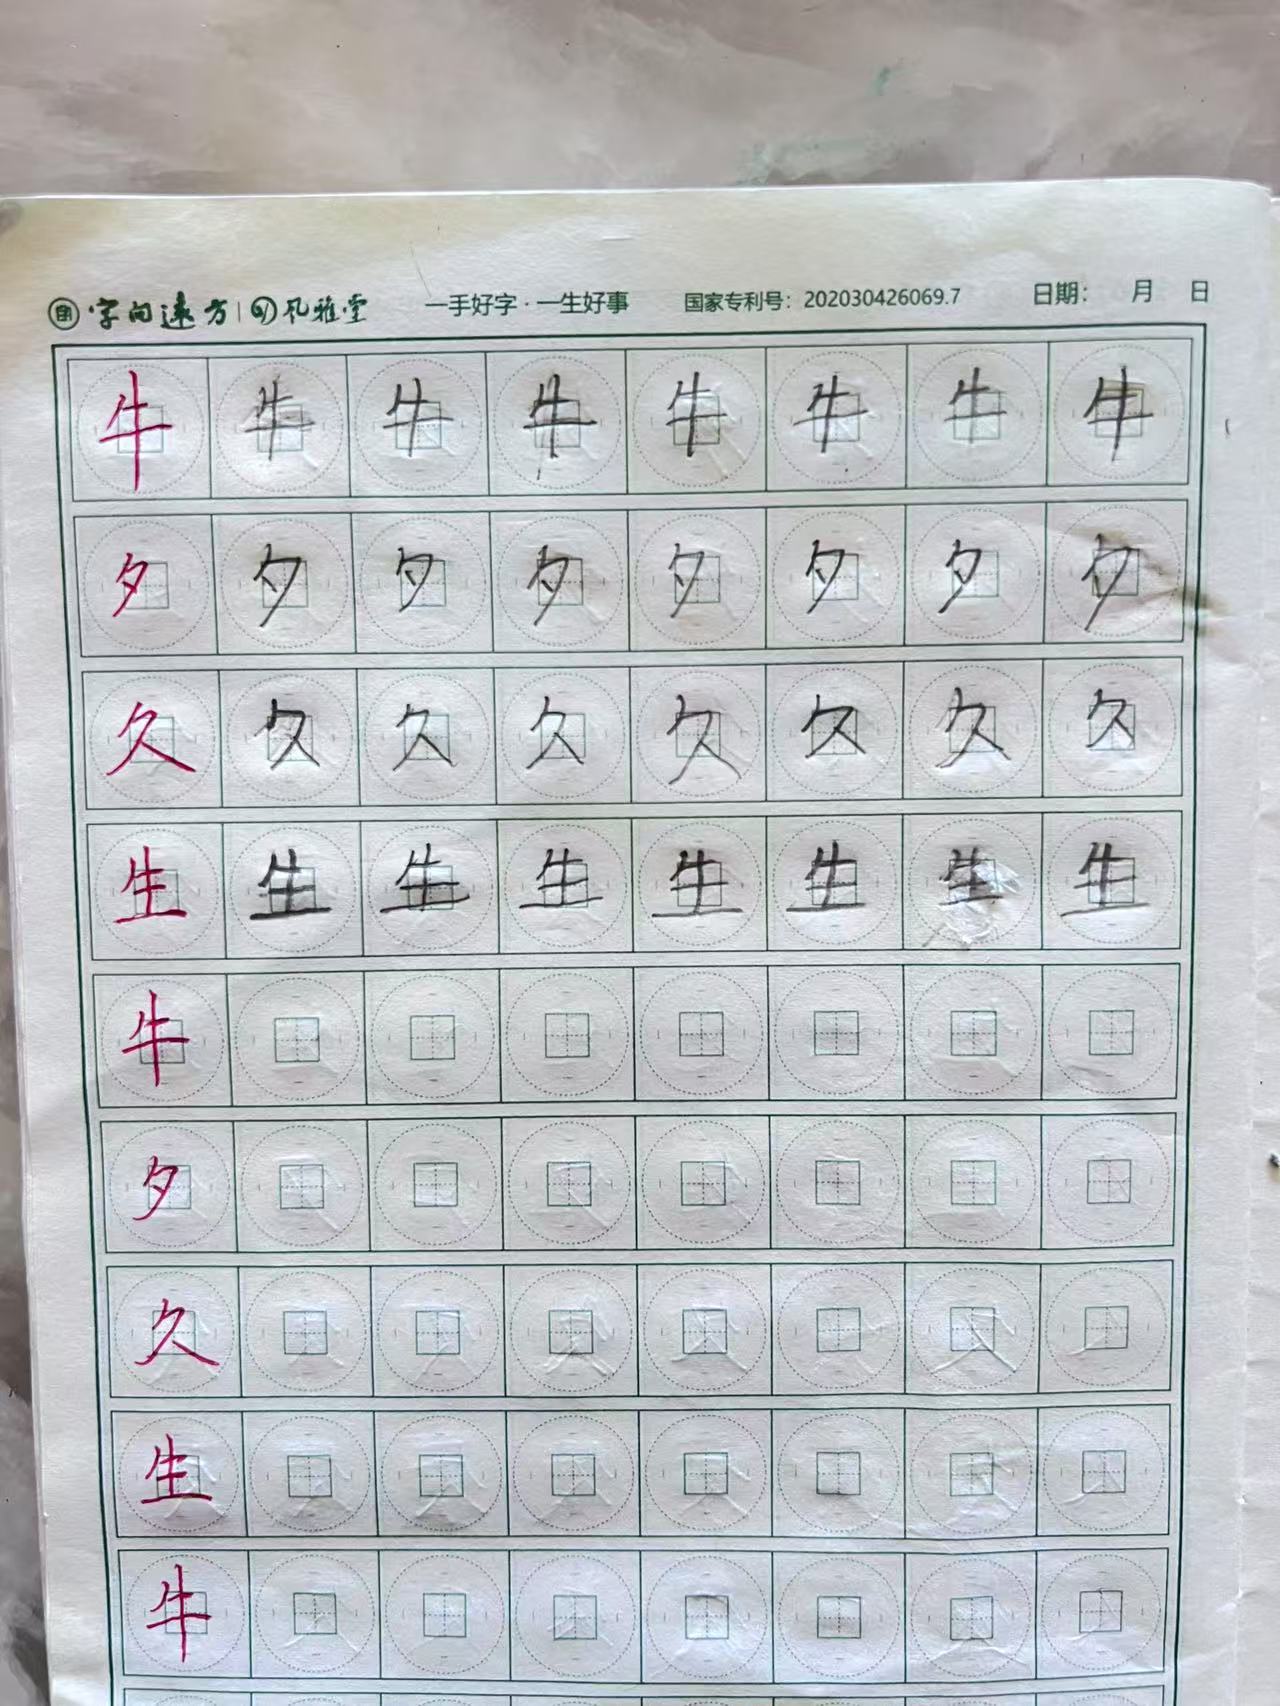 字向远方 风雅堂 一手好字·一生好事 国家专利号：202030426069.7 日期： 月 日
牛 牛 牛 牛 牛 牛 牛 牛
夕 夕 夕 夕 夕 夕 夕 夕
久 久 久 久 久 久 久 久
生 生 生 生 生 生 生 生
牛
夕
久
生
牛